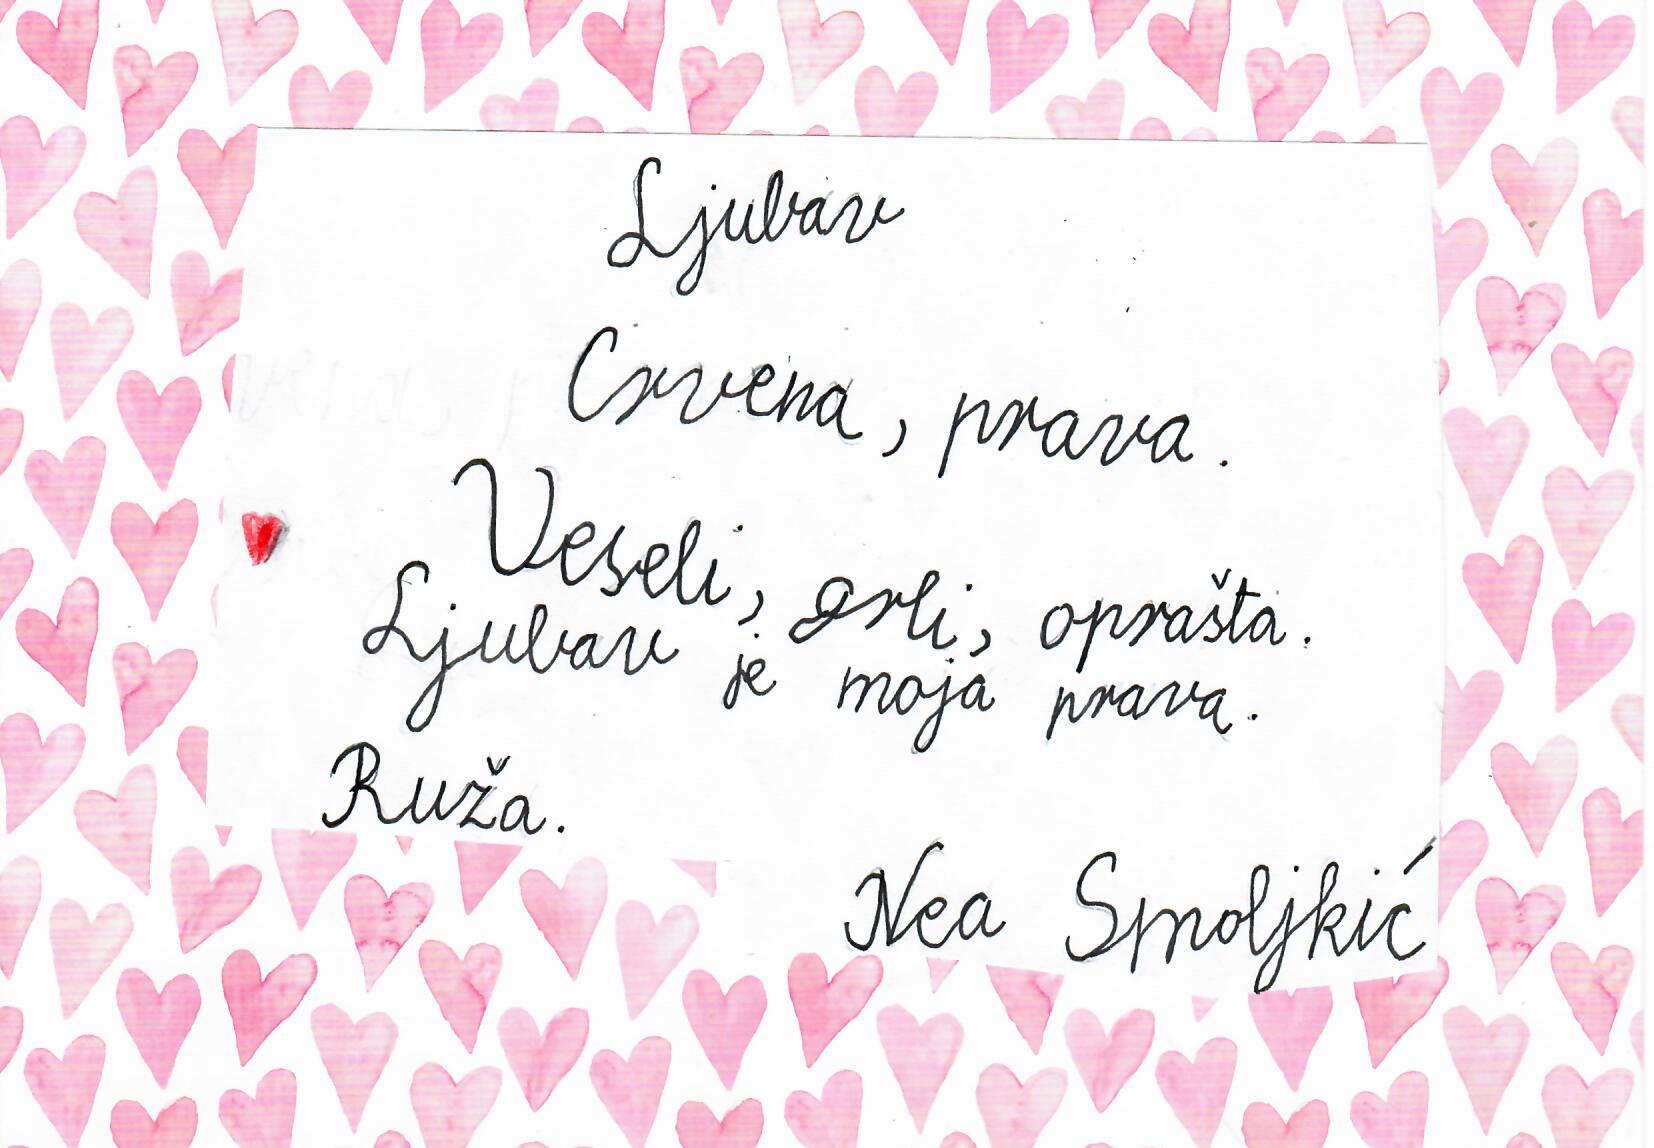 Ljubav
Crvena, prava.
Veseli, grli, oprašta.
Ljubav je moja prava.
Ruža.
Nea Smoljkić